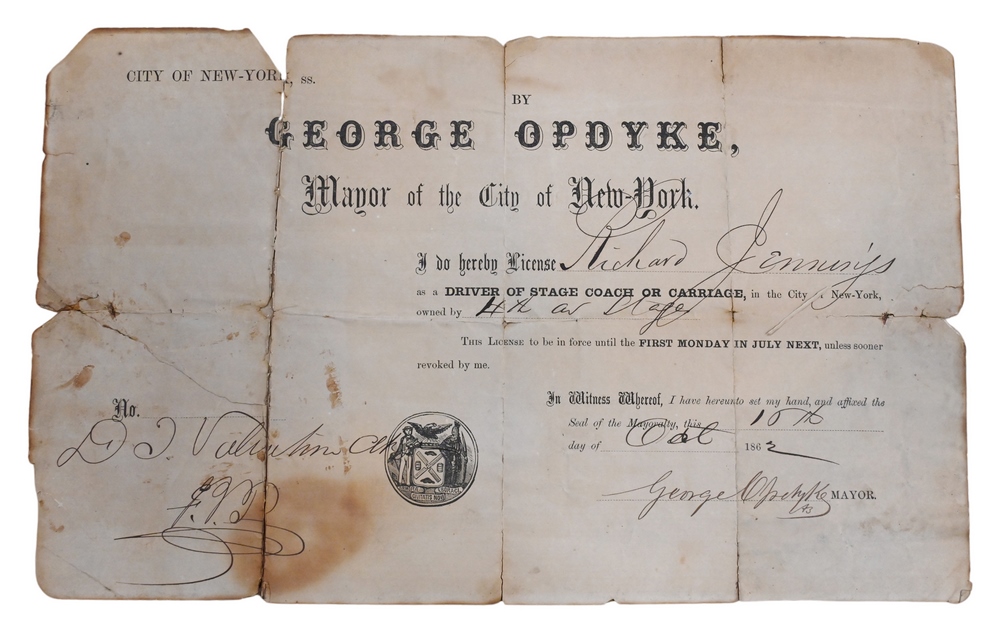 CITY OF NEW-YORK, ss.
BY
GEORGE OPDYKE,
Mayor of the City of New-York.
I do hereby License Richard Jennings
as a DRIVER OF STAGE COACH OR CARRIAGE, in the City New-York,
owned by 4th av Stages
THIS LICENSE to be in force until the FIRST MONDAY IN JULY NEXT, unless sooner
revoked by me.
In Witness Whereof, I have hereunto set my hand, and affixed the
Seal of the Mayoralty, this 15th
day of Oct 1862
George Opdyke MAYOR.
No.
D T Valentine Clk